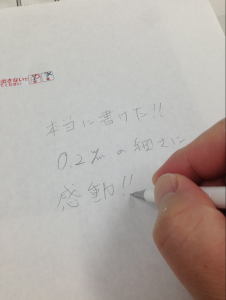 本当に書けた!!
0.2㎜の細さに
感動!!